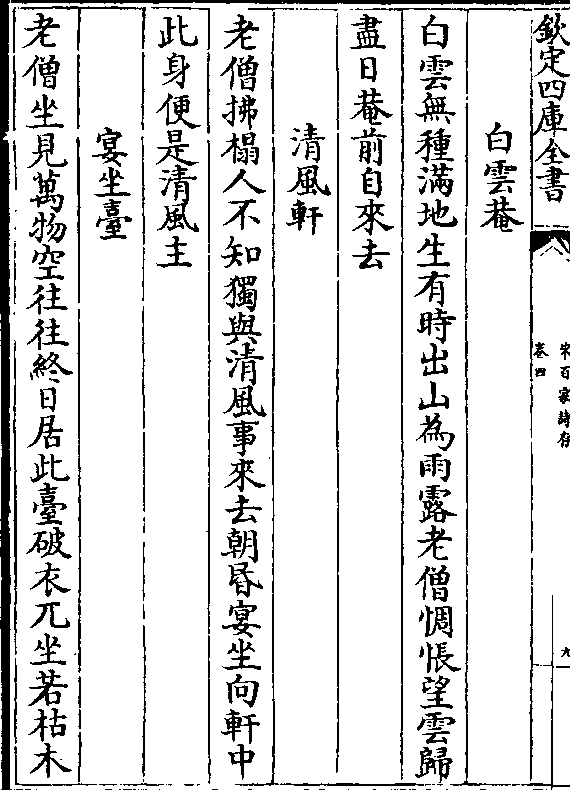 欽定四庫全書
宋百家詩存
卷四
九
白雲菴
白雲無種滿地生有時出山為雨露老僧惆悵望雲歸
盡日菴前自來去
清風軒
老僧拂榻人不知獨與清風事來去朝昏宴坐向軒中
此身便是清風主
宴坐臺
老僧坐見萬物空往往終日居此臺破衣兀坐若枯木